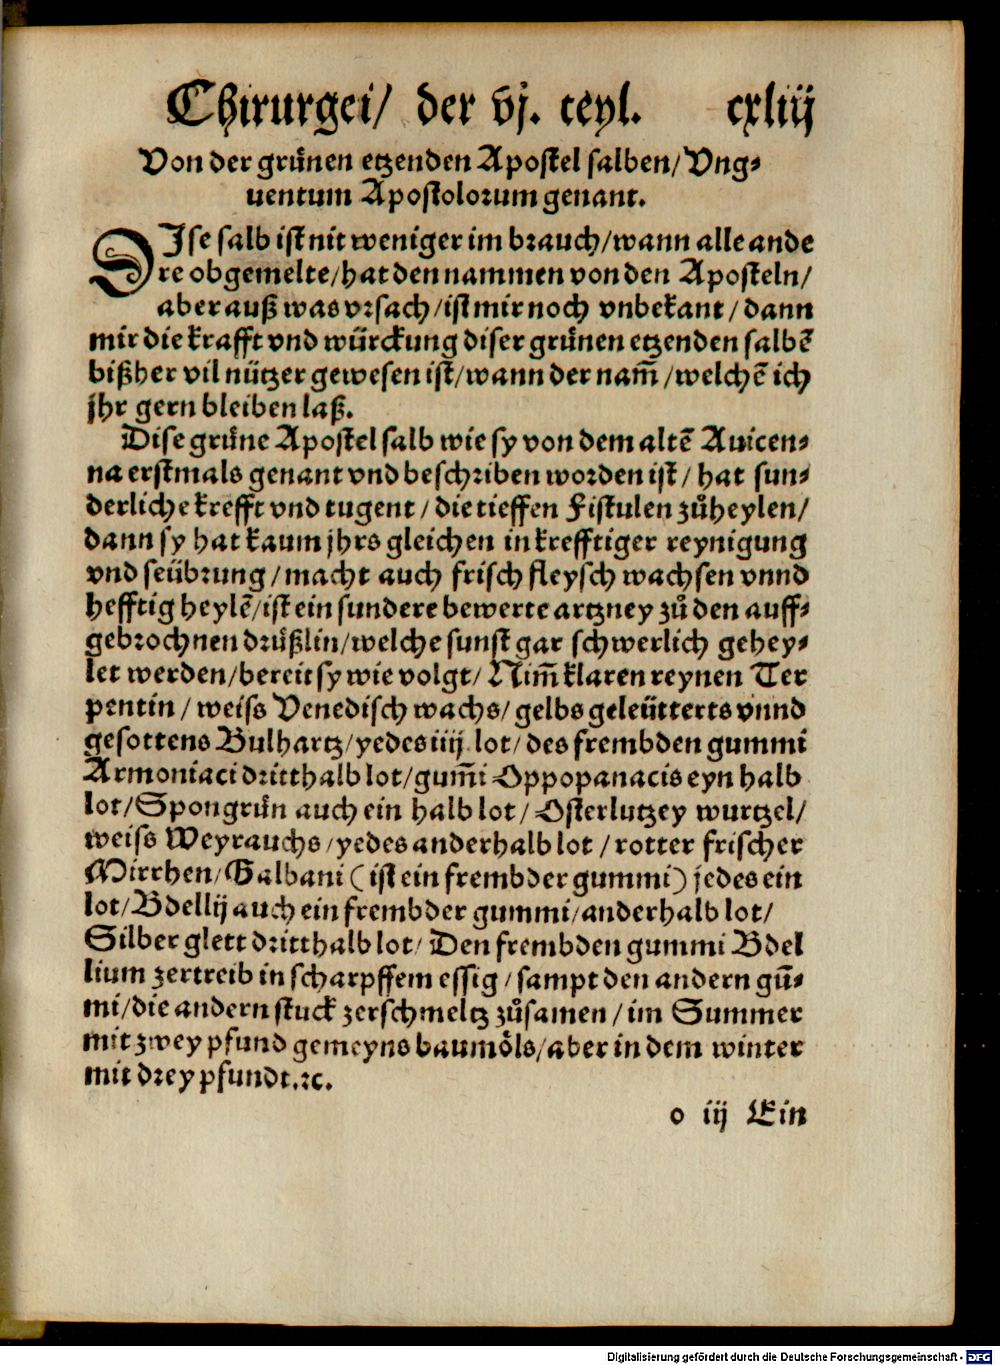 Chirurgei/ der vj. teyl. cxliij
Von der grůnen etzenden Apostel salben/ Vng⸗
uentum Apostolorum genant.
DIse salb ist nit weniger im brauch/wann alle ande
re obgemelte/hat den nammen von den Aposteln/
aber auß was vrsach/ist mir noch vnbekant/dann
mir die krafft vnd wu̎rckung diser grůnen etzenden salbē
bißher vil nützer gewesen ist/wann der nam̃/welchē ich
jhr gern bleiben laß.
Dise grůne Apostel salb wie sy von dem altē Auicen⸗
na erstmals genant vnd beschriben worden ist/ hat sun⸗
derliche krefft vnd tugent/die tieffen Fistulen zůheylen/
dann sy hat kaum jhrs gleichen in krefftiger reynigung
vnd seübrung/macht auch frisch fleysch wachsen vnnd
hefftig heylē/ist ein sundere bewerte artzney zů den auff⸗
gebrochnen drůßlin/welche sunst gar schwerlich gehey⸗
let werden/bereit sy wie volgt/ Nim̃ klaren reynen Ter
pentin/ weiss Venedisch wachs/ gelbs geleütterts vnnd
gesottens Bulhartz/yedes iiij lot/ des frembden gummi
Armoniaci dritthalb lot/gum̃i Oppopanacis eyn halb
lot/Spongrůn auch ein halb lot/ Osterlutzey wurtzel/
weiss Weyrauchs/yedes anderhalb lot/rotter frischer
Mirrhen/Galbani (ist ein frembder gummi) jedes ein
lot/Bdellij auch ein frembder gummi/anderhalb lot/
Silber glett dritthalb lot/ Den frembden gummi Bdel
lium zertreib in scharpffem essig/sampt den andern gū⸗
mi/die andern stuck zerschmeltz zůsamen/im Summer
mit zwey pfund gemeyns baumöls/aber in dem winter
mit drey pfundt.ꝛc.
o iij Ein
Digitalisierung gefördert durch die Deutsche Forschungsgemeinschaft - DFG